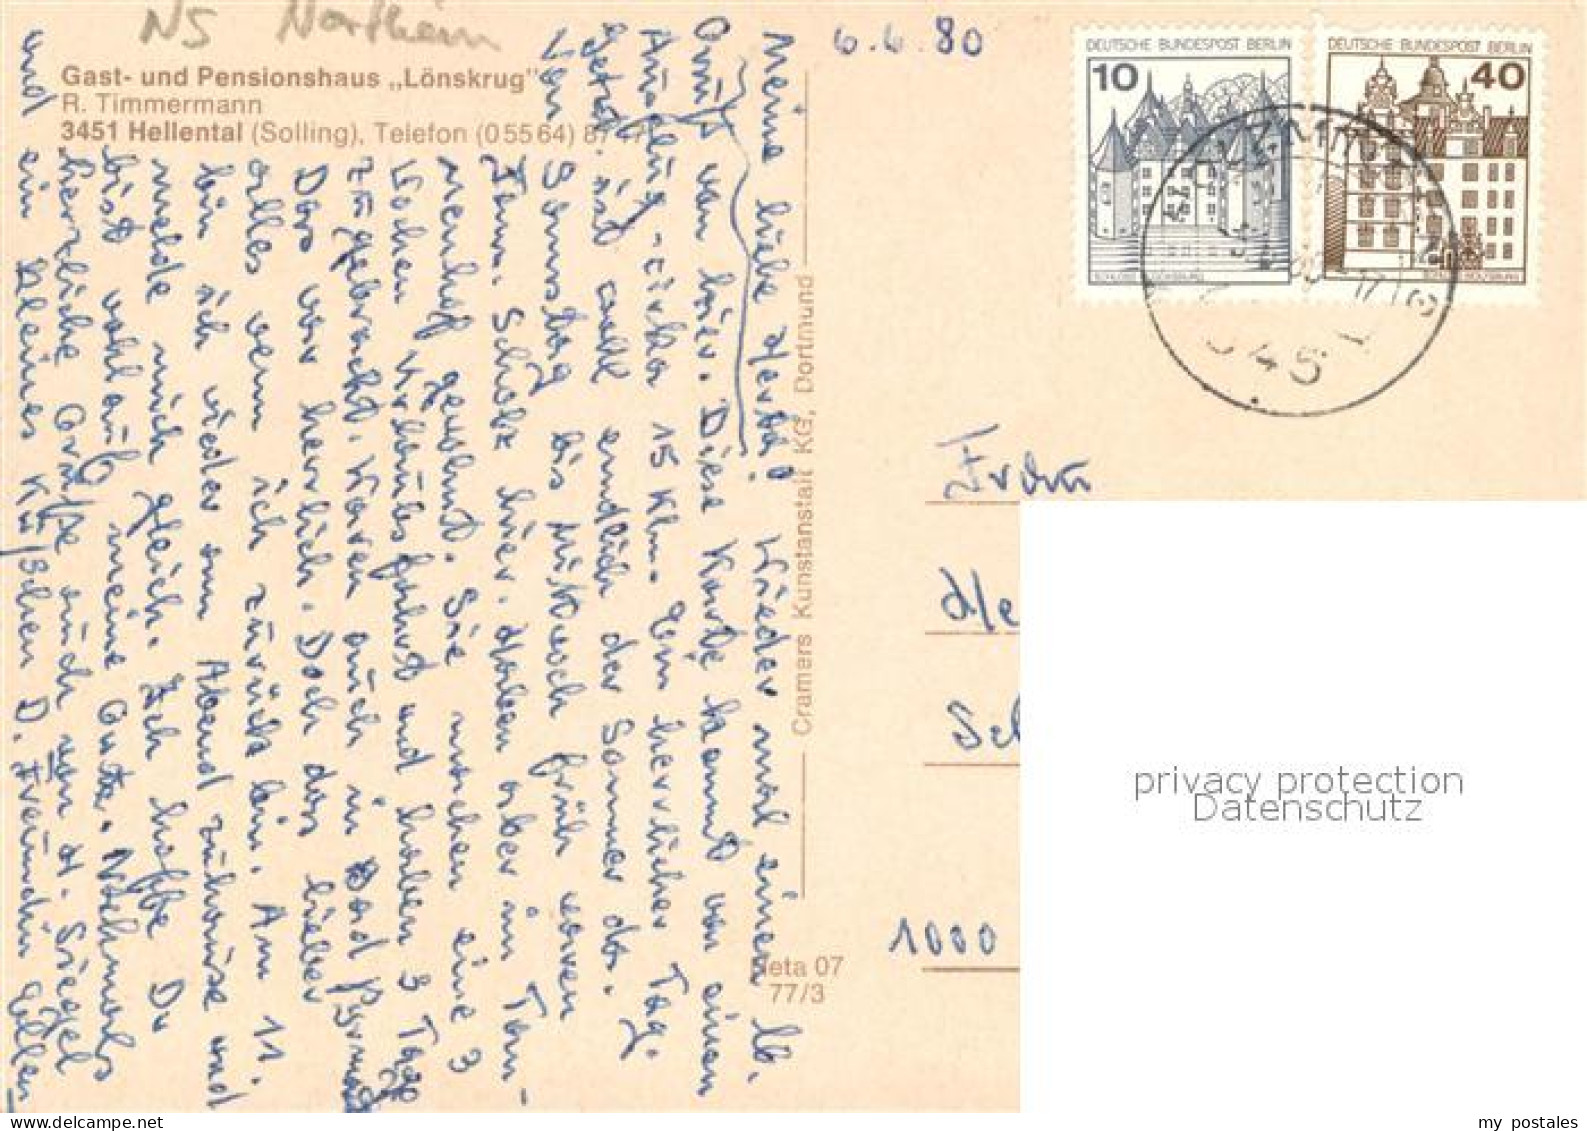 NS Northeim
Gast- und Pensionshaus „Lönskrug"
R. Timmermann
3451 Hellental (Solling), Telefon (05564) 8
6.6.80
DEUTSCHE BUNDESPOST BERLIN
10
SCHLOSS GLÜCKSBURG
DEUTSCHE BUNDESPOST BERLIN
40
SCHLOSS WOLFSBURG
345
Meine liebe Herta! Wieder mal einen lb.
Gruß von hier. Diese Karte kommt von einem
Ausflug - cirka 15 Klm. Ein herrlicher Tag.
Jetzt ist auch endlich der Sommer da.
Von Sonnstag bis Mittwoch früh waren
Fam. Scholz hier. Haben aber im Tan-
nenhof gewohnt. Sie machen eine 3
Wochen Urlaubsfahrt und haben 3 Tage
zugebracht. Waren auch in Bad Pyrmont
Das war herrlich. Doch das lieber
alles wenn ich zurück bin. Am 11.
bin ich wieder am Abend zuhause und
melde mich gleich. Ich hoffe Du
bist wohlauf meine Gute. Nochmals
herzliche Grüße auch von H. Siegel
und ein kleines Küßchen D. Freundin Ellen
Cramers Kunstanstalt KG, Dortmund
Neta 07
77/3
Frau
He
Sch
1000
privacy protection
Datenschutz
my postales